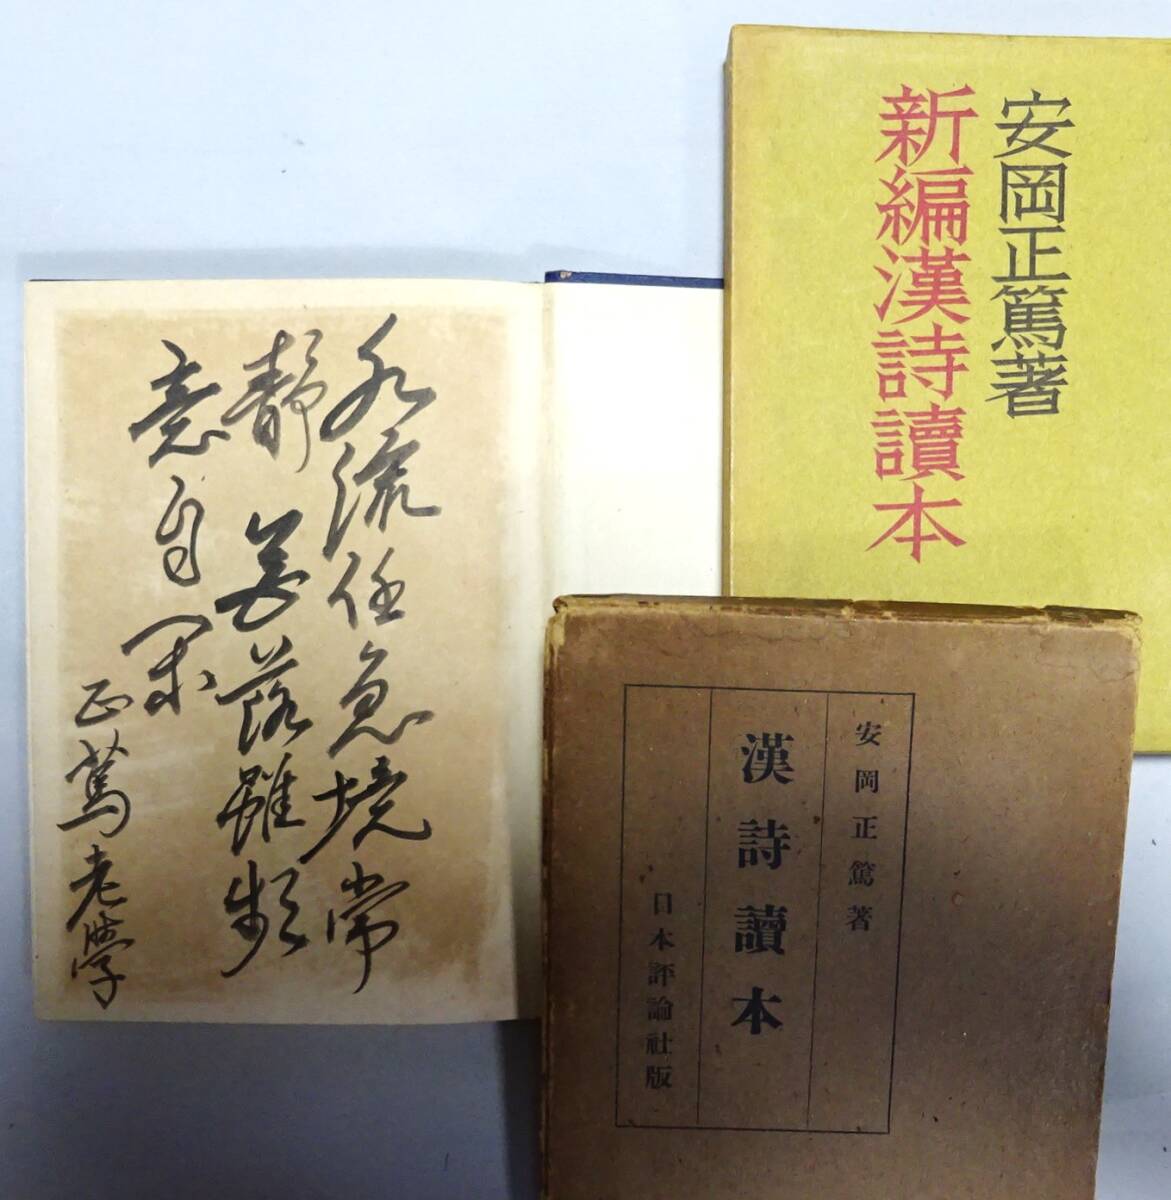 安岡正篤著
新編漢詩讀本
水流任急境常
静 花落雖頻
意自閑
正篤老學
安岡正篤著
漢詩讀本
日本評論社版